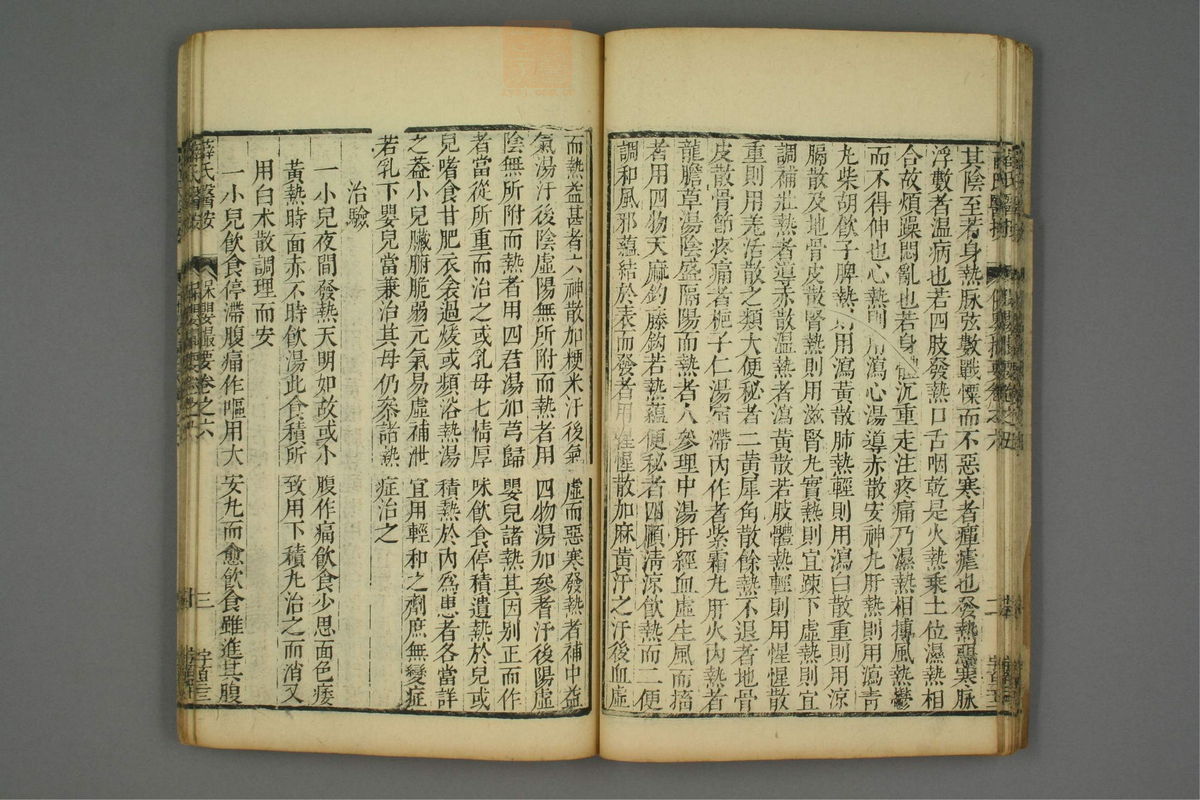 其陰至若身熱脉弦數戰慄而不惡寒者癉瘧也發熱惡寒脉
浮數者温病也若四肢發熱口舌咽乾是火熱乘土位濕熱相
合故煩躁悶亂也若身體沉重走注疼痛乃濕熱相搏風熱鬱
而不得伸也心熱則用瀉心湯導赤散安神丸肝熱則用瀉青
丸柴胡飲子脾熱用瀉黃散肺熱輕則用瀉白散重則用凉
膈散及地骨皮散腎熱則用滋腎丸實熱則宜踈下虛熱則宜
調補壯熱者導赤散温熱者瀉黃散若肢體熱輕則用惺惺散
重則用羗活散之類大便秘者二黃犀角散餘熱不退者地骨
皮散骨節疼痛者梔子仁湯宿滯内作者紫霜丸肝火内熱者
龍膽草湯陰盛隔陽而熱者人參理中湯肝經血虛生風而搐
者用四物天麻鈎藤鈎若熱蘊便秘者四順清凉飲熱而二便
調和風邪蘊結於表而發者用惺惺散加麻黃汗之汗後血虛
而熱益甚者六神散加粳米汗後氣虛而惡寒發熱者補中益
氣湯汗後陰虛陽無所附而熱者用四物湯加參耆汗後陽虛
陰無所附而熱者用四君湯加芎歸嬰兒諸熱其因别正而作
者當從所重而治之或乳母七情厚味飲食停積遺熱於兒或
兒嗜食甘肥衣衾過煖或頻浴熱湯積熱於内爲患者各當詳
之葢小兒臟腑脆弱元氣易虛補泄宜用輕和之劑庶無變症
若乳下嬰兒當兼治其母仍叅諸熱症治之
治驗
一小兒夜間發熱天明如故或小腹作痛飲食少思面色痿
黃熱時面赤不時飲湯此食積所致用下積丸治之而消又
用白术散調理而安
一小兒飲食停滯腹痛作嘔用大安丸而愈飲食雖進其腹
薛氏醫按 保嬰撮要卷之六 三